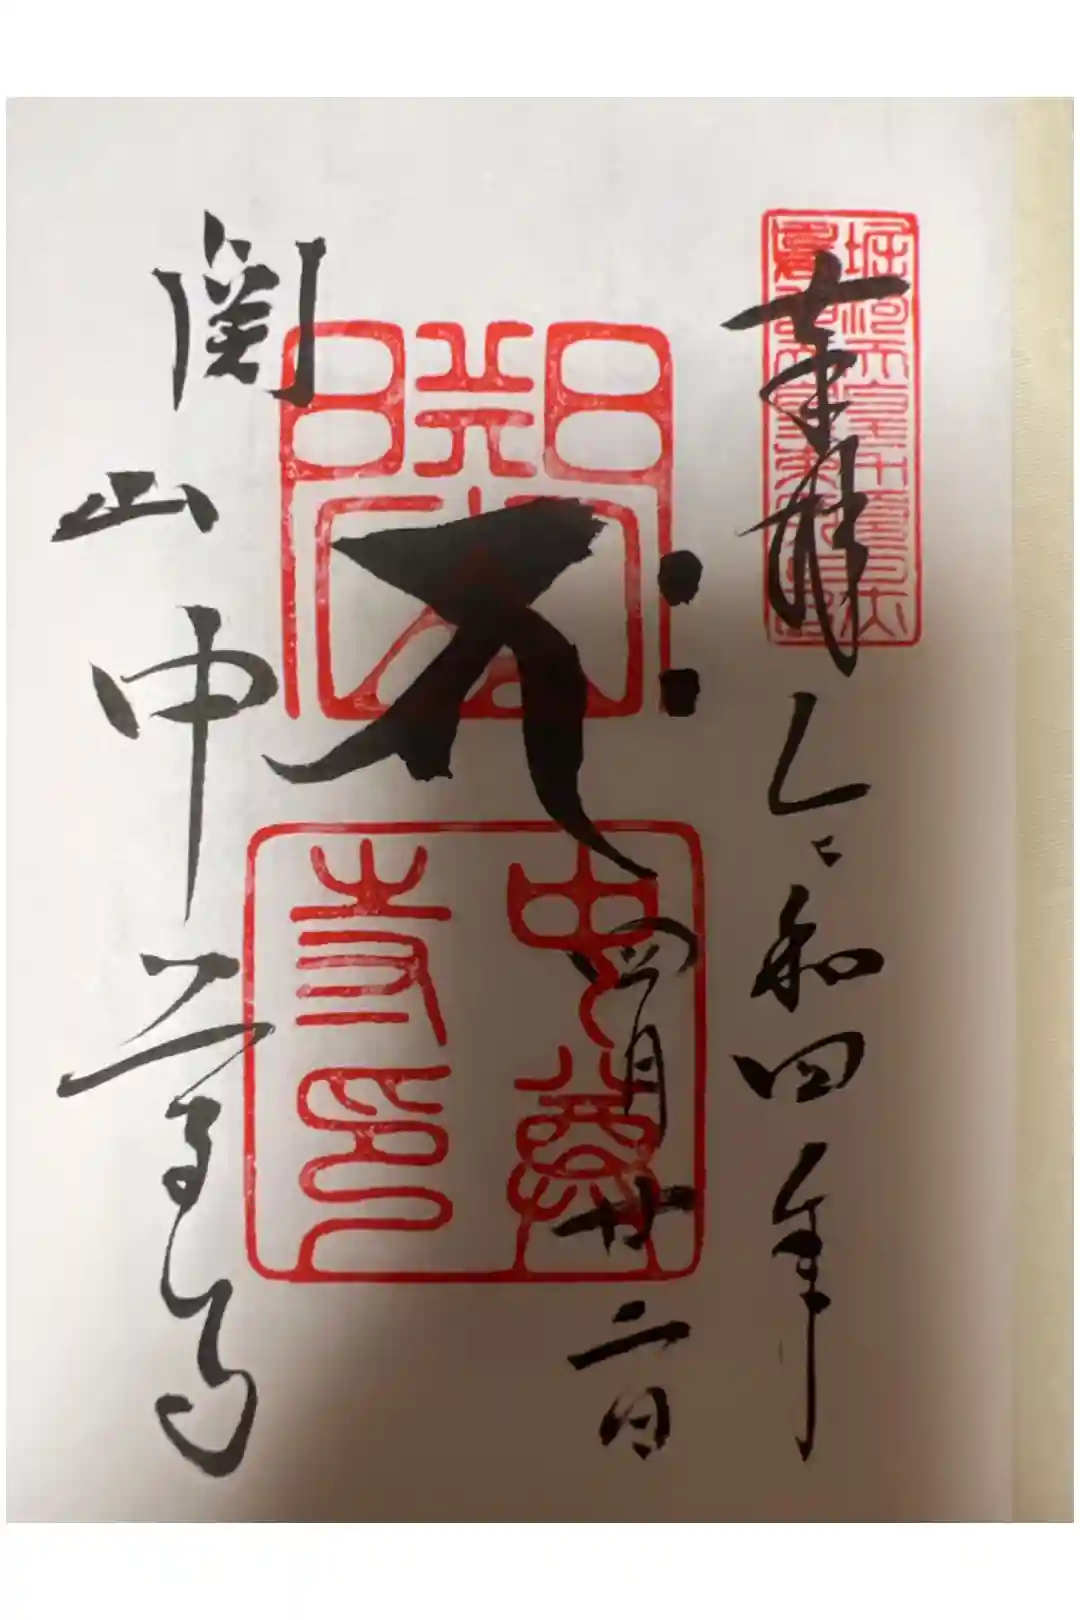 奉拝
令和四年
四月廿二日
関山
中尊
寺印
関山中尊寺